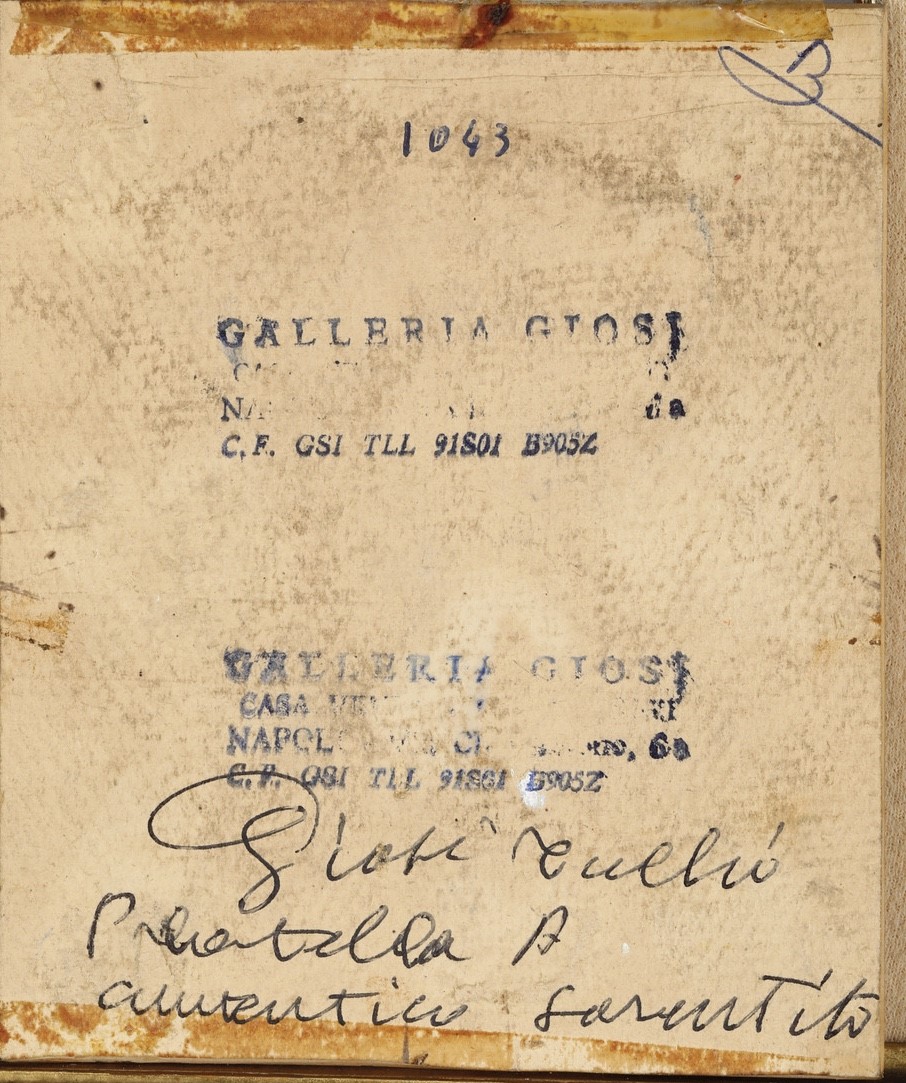 B
1043
GALLERIA GIOSI
6a
C.F. GSI TLL 91S01 B905Z
GALLERIA GIOSI
CASA
6a
C.F. GSI TLL 91S01 B905Z
Giosi Tullio
Pratella A
autentico garantito